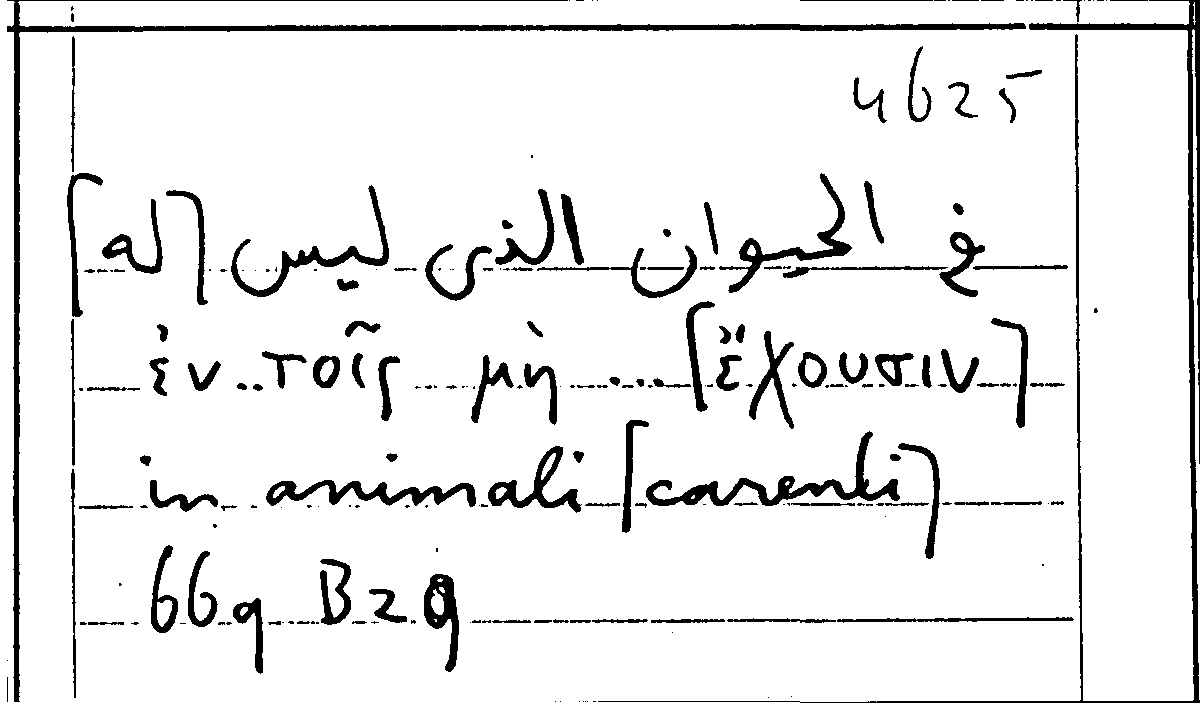 4625
في الحيوان الذي ليس [له]
ἐν..τοῖς μὴ ... [ἔχουσιν]
in animali [carenti]
669 B 29